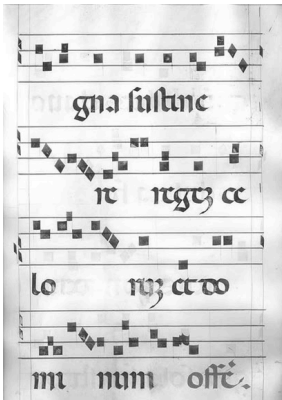 gna sustine
re regez ce
lo ruz et do
mi num offe.